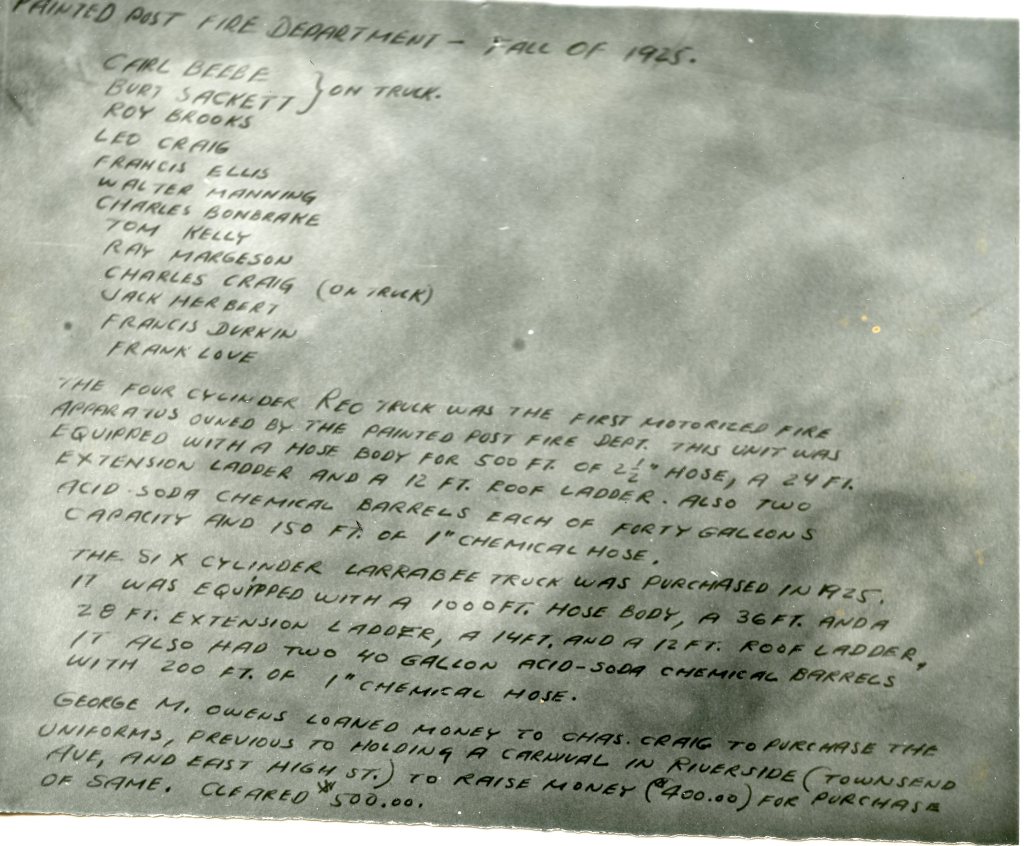 PAINTED POST FIRE DEPARTMENT - FALL OF 1925.
CARL BEEBE
BURT SACKETT } ON TRUCK.
ROY BROOKS
LEO CRAIG
FRANCIS ELLIS
WALTER MANNING
CHARLES BONBRAKE
TOM KELLY
RAY MARGESON
CHARLES CRAIG (ON TRUCK)
JACK HERBERT
FRANCIS DURKIN
FRANK LOVE
THE FOUR CYLINDER REO TRUCK WAS THE FIRST MOTORICED FIRE
APPARATUS OWNED BY THE PAINTED POST FIRE DEPT. THIS UNIT WAS
EQUIPPED WITH A HOSE BODY FOR 500 FT. OF 2 1/2" HOSE, A 24 FT.
EXTENSION LADDER AND A 12 FT. ROOF LADDER. ALSO TWO
ACID-SODA CHEMICAL BARRELS EACH OF FORTY GALLONS
CAPACITY AND 150 FT. OF 1" CHEMICAL HOSE.
THE SIX CYLINDER LARRABEE TRUCK WAS PURCHASED IN 1925.
IT WAS EQUIPPED WITH A 1000 FT. HOSE BODY, A 36 FT. AND A
28 FT. EXTENSION LADDER, A 14 FT. AND A 12 FT. ROOF LADDER,
IT ALSO HAD TWO 40 GALLON ACID-SODA CHEMICAL BARRELS
WITH 200 FT. OF 1" CHEMICAL HOSE.
GEORGE M. OWENS LOANED MONEY TO CHAS. CRAIG TO PURCHASE THE
UNIFORMS, PREVIOUS TO HOLDING A CARNIVAL IN RIVERSIDE (TOWNSEND
AVE, AND EAST HIGH ST.) TO RAISE MONEY ($400.00) FOR PURCHASE
OF SAME. CLEARED $500.00.